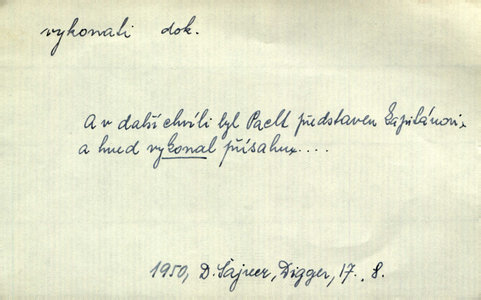 vykonati dok.
A v další chvíli byl Paclt představen kapitánovi,
a hned vykonal přísahu....
1950, D. Šajner, Digger, 17. 8.